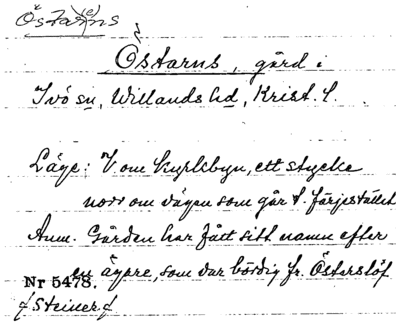 Östarns
Östarns, gård i
Ivö sn, Willands hd, Krist. l.
Läge: V om kyrkbyn, ett stycke
norr om vägen som går t. färjestället
Anm. Gården har fått sitt namn efter
en ägare, som var bördig fr. Österslöf
Nr 5473.
Steiner